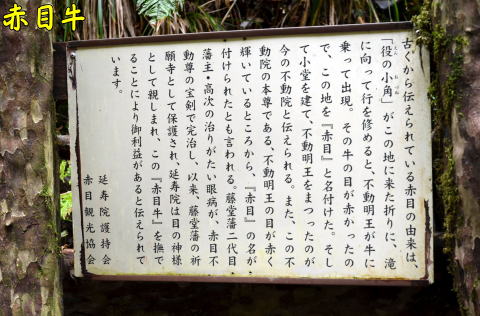 赤目牛
古くから伝えられている赤目の由来は、
「役の小角」がこの地に来た折りに、滝
に向って行を修めると、不動明王が牛に
乗って出現。その牛の目が赤かったの
で、この地を『赤目』と名付けた。そし
て小堂を建て、不動明王をまつったのが
今の不動院と伝えられる。また、この不
動院の本尊である、不動明王の目が赤く
輝いているところから、『赤目』の名が
付けられたとも言われる。藤堂藩二代目
藩主・高次の治りがたい眼病が、赤目不
動尊の宝剣で完治し、以来、藤堂藩の祈
願寺として保護され、延寿院は目の神様
として親しまれ、この『赤目牛』を撫で
ることにより御利益があると伝えられて
います。
延寿院護持会
赤目観光協会